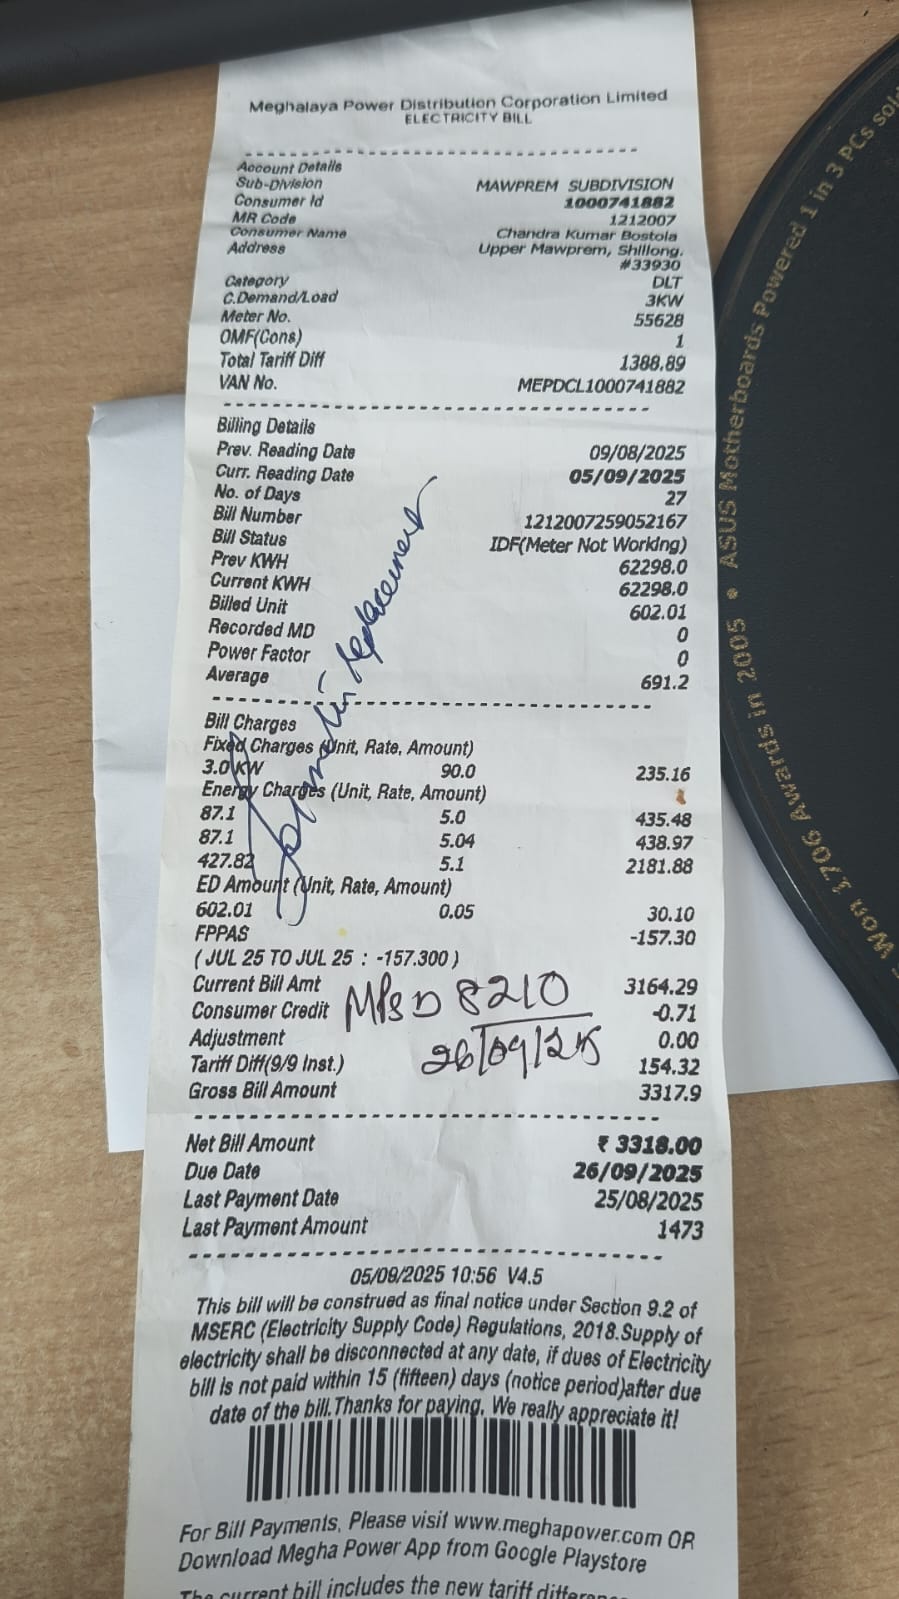 Meghalaya Power Distribution Corporation Limited
ELECTRICITY BILL
Account Details
Sub-Division MAWPREM SUBDIVISION
Consumer Id 1000741882
MR Code 1212007
Consumer Name Chandra Kumar Bostola
Address Upper Mawprem, Shillong.
#33930
Category DLT
C.Demand/Load 3KW
Meter No. 55628
OMF(Cons) 1
Total Tariff Diff 1388.89
VAN No. MEPDCL1000741882
Billing Details
Prev. Reading Date 09/08/2025
Curr. Reading Date 05/09/2025
No. of Days 27
Bill Number 1212007259052167
Bill Status IDF(Meter Not Working)
Prev KWH 62298.0
Current KWH 62298.0
Billed Unit 602.01
Recorded MD 0
Power Factor 0
Average 691.2
replacement
Bill Charges
Fixed Charges (Unit, Rate, Amount)
3.0 KW 90.0 235.16
Energy Charges (Unit, Rate, Amount)
87.1 5.0 435.48
87.1 5.04 438.97
427.82 5.1 2181.88
ED Amount (Unit, Rate, Amount)
602.01 0.05 30.10
FPPAS -157.30
( JUL 25 TO JUL 25 : -157.300 )
Current Bill Amt 3164.29
Consumer Credit -0.71
8210
Adjustment 0.00
26/09/25
Tariff Diff(9/9 Inst.) 154.32
Gross Bill Amount 3317.9
Net Bill Amount ₹ 3318.00
Due Date 26/09/2025
Last Payment Date 25/08/2025
Last Payment Amount 1473
05/09/2025 10:56 V4.5
This bill will be construed as final notice under Section 9.2 of
MSERC (Electricity Supply Code) Regulations, 2018.Supply of
electricity shall be disconnected at any date, if dues of Electricity
bill is not paid within 15 (fifteen) days (notice period)after due
date of the bill.Thanks for paying. We really appreciate it!
For Bill Payments, Please visit www.meghapower.com OR
Download Megha Power App from Google Playstore
The current bill includes the new tariff
Won 1706 Awards in 2005 • ASUS Motherboards Powered 1 in 3 PCs sol